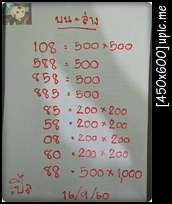 บน - ล่าง
108 = 500 × 500
588 = 500
858 = 500
885 = 500
85 = 200 × 200
58 = 200 × 200
08 = 200 × 200
80 = 200 × 200
88 = 500 × 1,000
16/9/60
[450x600] upic.me